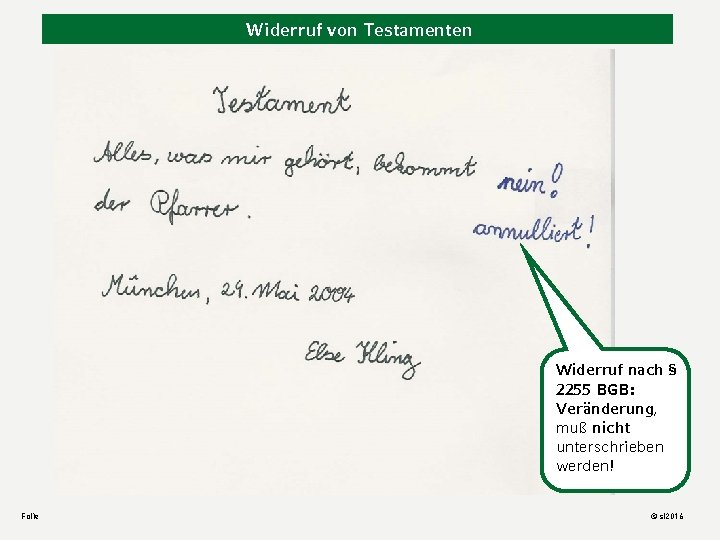 Widerruf von Testamenten
Testament
Alles, was mir gehört, bekommt
nein!
der Pfarrer.
annulliert!
München, 29. Mai 2004
Else Kling
Widerruf nach §
2255 BGB:
Veränderung,
muß nicht
unterschrieben
werden!
Folie
© sl2016